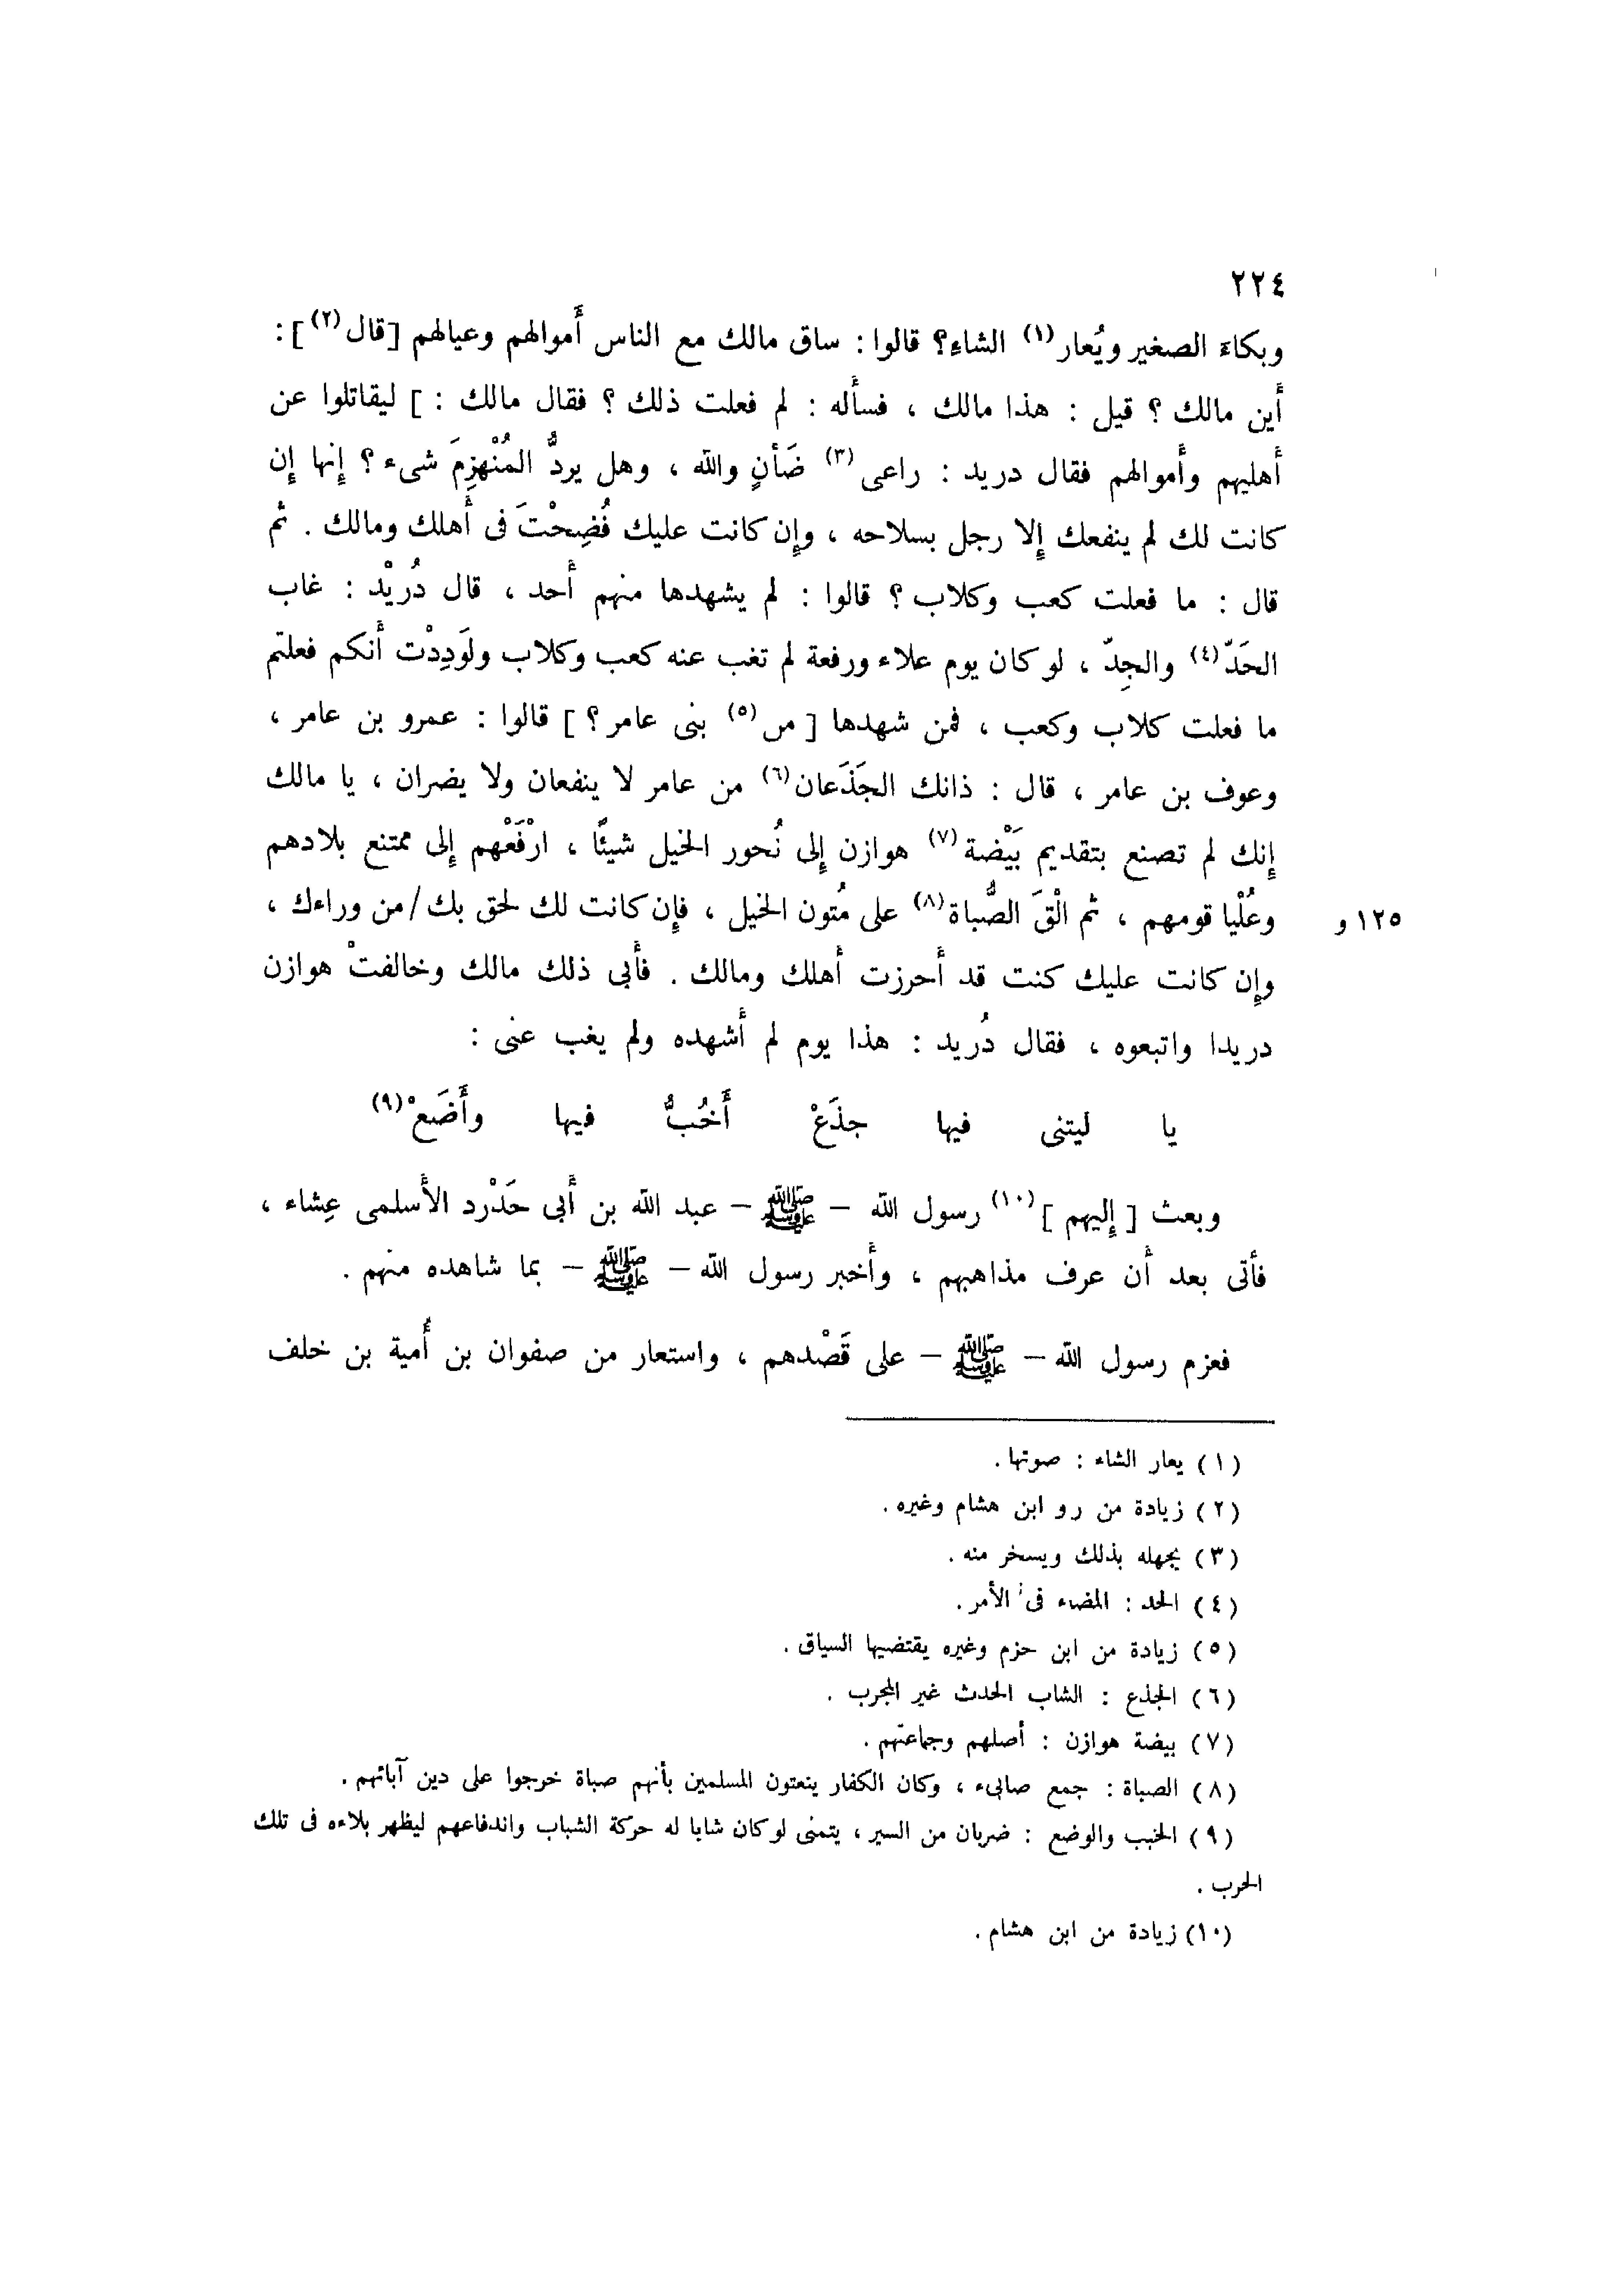 ٢٢٤
وبكاءَ الصغير ويُعار(١) الشاءِ؟ قالوا : ساق مالك مع الناس أَموالهم وعيالهم [قال(٢)] :
أَين مالك ؟ قيل : هذا مالك ، فسأَله : لم فعلت ذلك ؟ فقال مالك : ] ليقاتلوا عن
أَهليهم وأَموالهم فقال دريد : راعى(٣) ضَأنٍ والله ، وهل يردُّ المُنْهزِمَ شىء ؟ إِنها إِن
كانت لك لم ينفعك إِلا رجل بسلاحه ، وإِن كانت عليك فُضِحْتَ فى أَهلك ومالك . ثم
قال : ما فعلت كعب وكلاب ؟ قالوا : لم يشهدها منهم أَحد ، قال دُريْد : غاب
الحَدّ(٤) والجِدّ ، لو كان يوم علاء ورفعة لم تغب عنه كعب وكلاب ولَوَدِدْت أَنكم فعلتم
ما فعلت كلاب وكعب ، فمن شهدها [ من(٥) بنى عامر ؟ ] قالوا : عمرو بن عامر ،
وعوف بن عامر ، قال : ذانك الجَذَعان(٦) من عامر لا ينفعان ولا يضران ، يا مالك
إِنك لم تصنع بتقديم بَيْضة(٧) هوازن إِلى نُحور الخيل شيئًا ، ارْفَعْهم إِلى ممتنع بلادهم
وعُلْيا قومهم ، ثم الْقَ الصُّباة(٨) على مُتون الخيل ، فإِن كانت لك لحق بك/من وراءك ،
١٢٥ و
وإِن كانت عليك كنت قد أَحرزت أَهلك ومالك . فأَبى ذلك مالك وخالفتْ هوازن
دريدا واتبعوه ، فقال دُريد : هذا يوم لم أَشهده ولم يغب عنى :
يا ليتنى فيها جذَعْ أَخُبُّ فيها وأَضَعْ(٩)
وبعث [ إِليهم ](١٠) رسول الله – ﷺ – عبد الله بن أَبى حَدْرد الأَسلمى عِشاء ،
فأَتى بعد أَن عرف مذاهبهم ، وأَخبر رسول الله – ﷺ – بما شاهده منهم .
فعزم رسول الله – ﷺ – على قَصْدهم ، واستعار من صفوان بن أُمية بن خلف
(١) يعار الشاء : صوتها .
(٢) زيادة من رو ابن هشام وغيره .
(٣) يجهله بذلك ويسخر منه .
(٤) الحد : المضاء فى الأمر .
(٥) زيادة من ابن حزم وغيره يقتضيها السياق .
(٦) الجذع : الشاب الحدث غير المجرب .
(٧) بيضة هوازن : أصلهم وجماعتهم .
(٨) الصباة : جمع صابىء ، وكان الكفار ينعتون المسلمين بأنهم صباة خرجوا على دين آبائهم .
(٩) الخبب والوضع : ضربان من السير ، يتمنى لو كان شابا له حركة الشباب واندفاعهم ليظهر بلاءه فى تلك
الحرب .
(١٠) زيادة من ابن هشام .